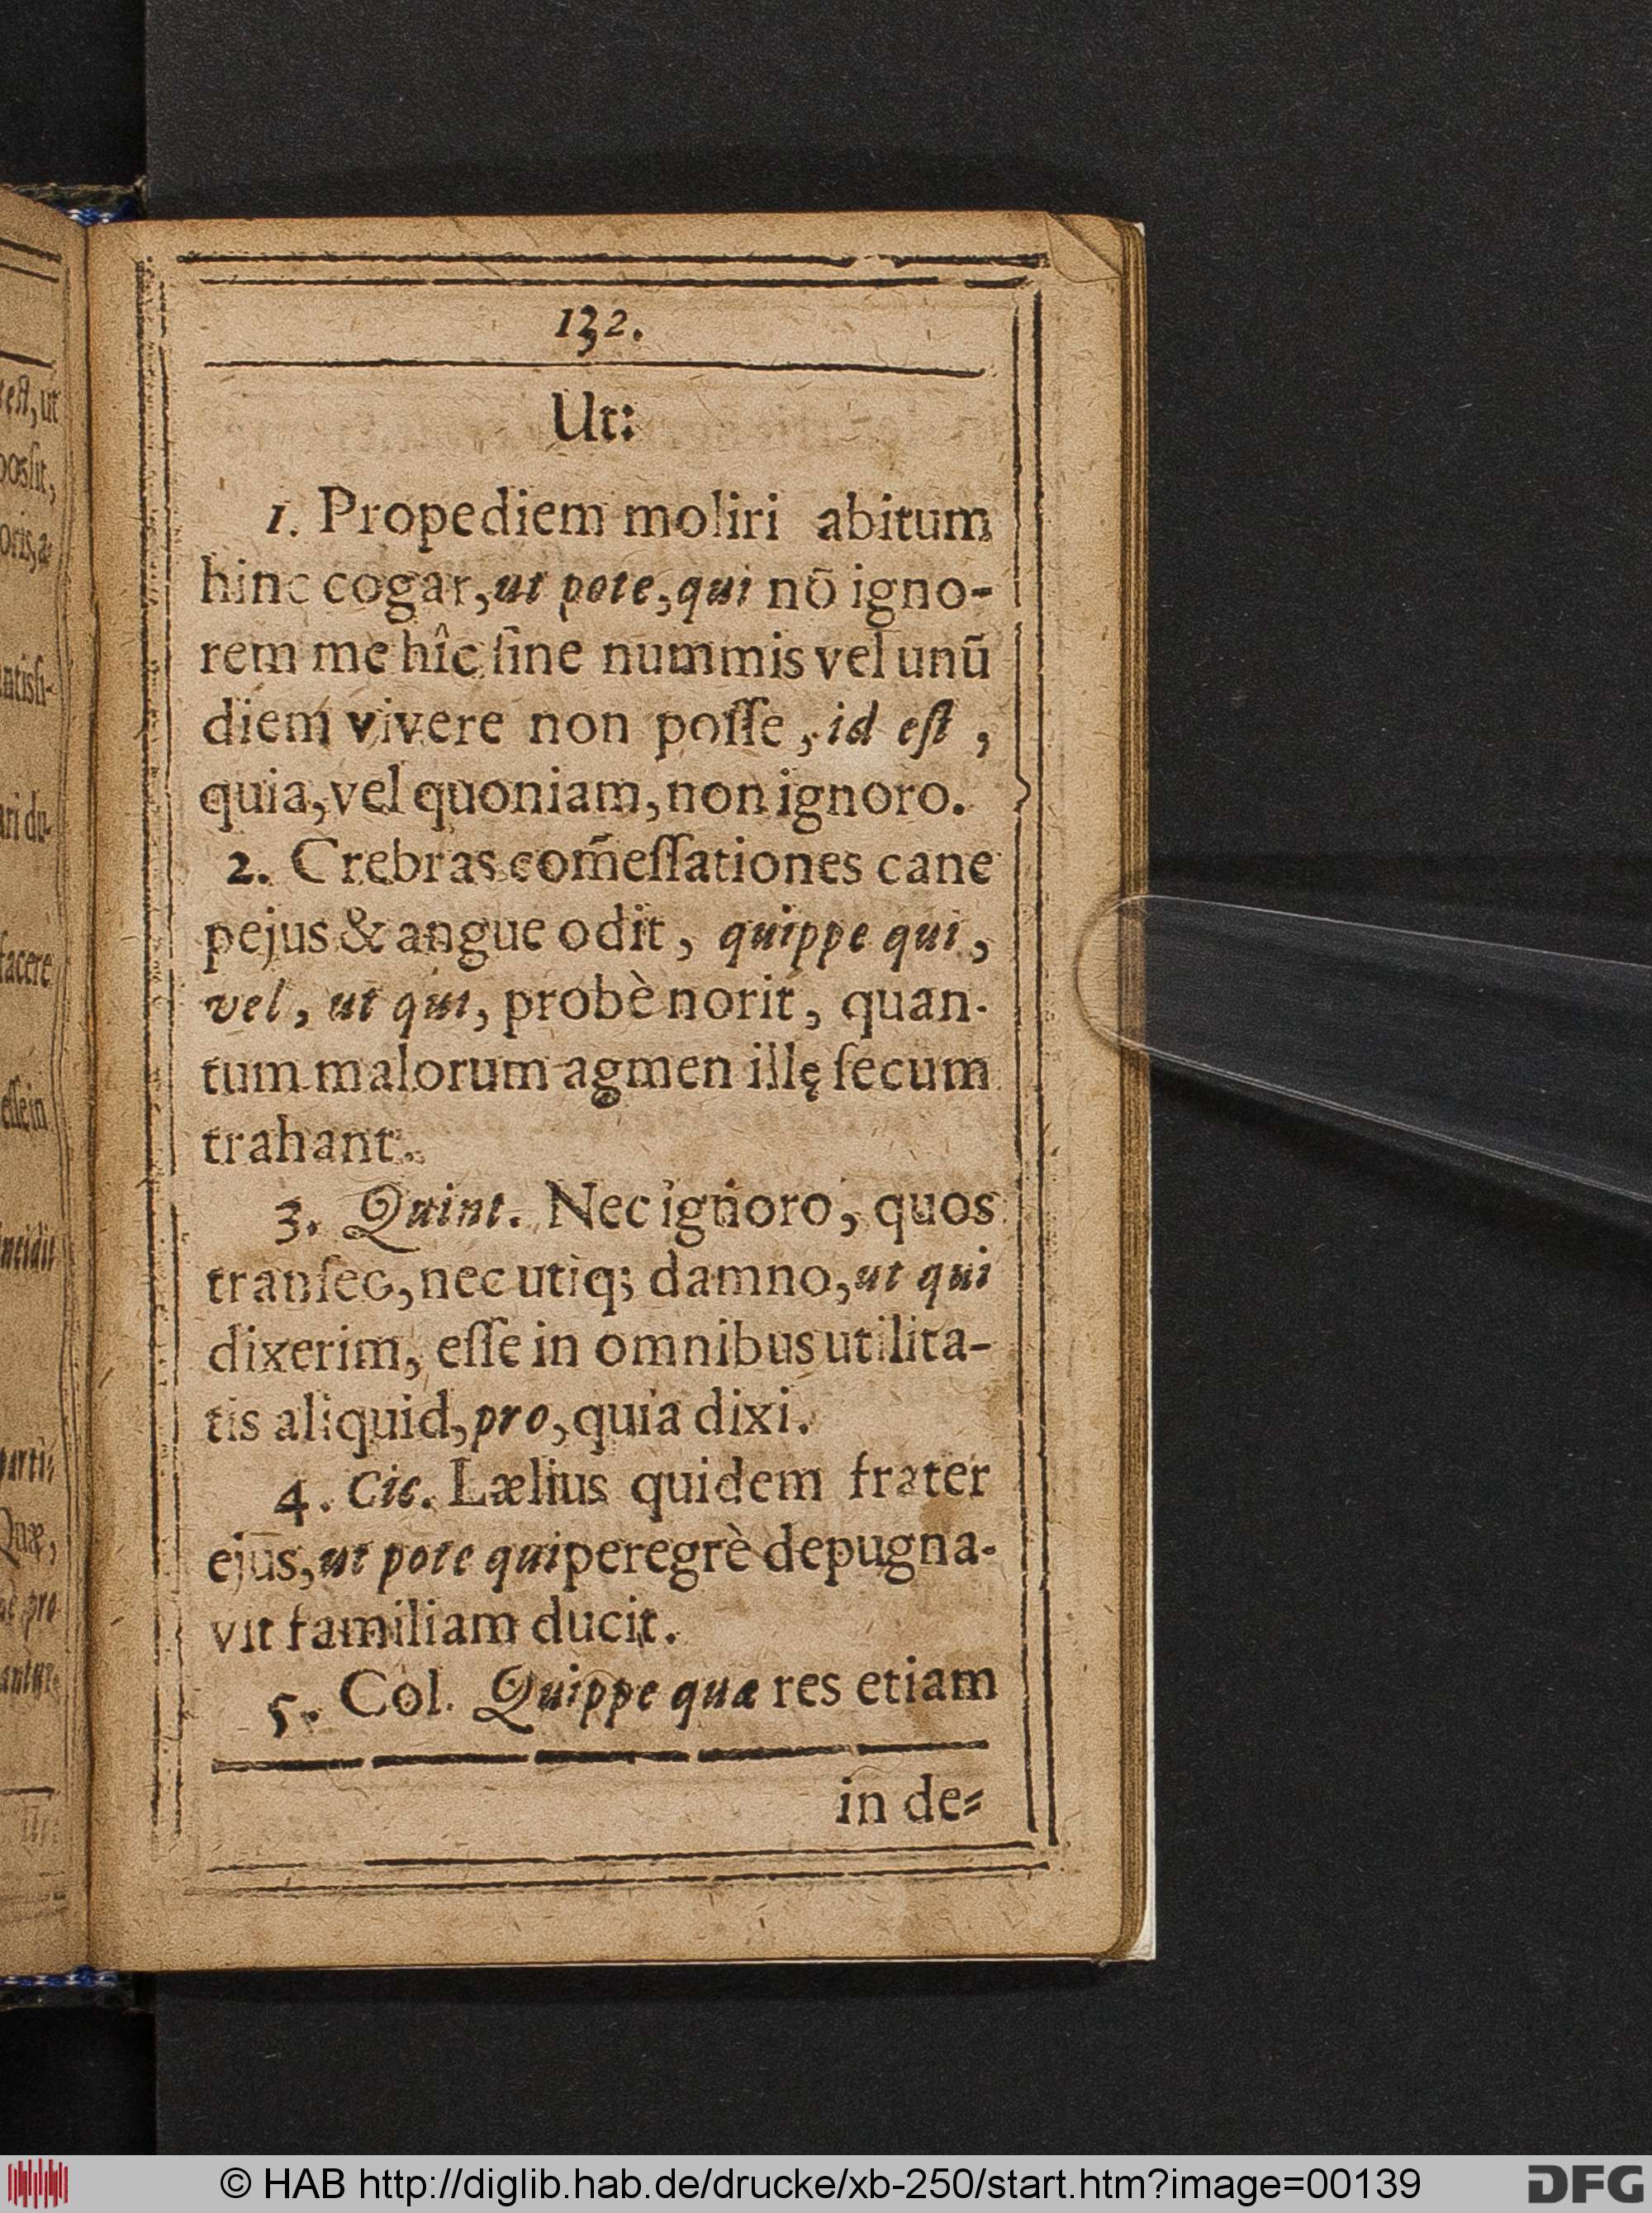 132.
Ut:
1. Propediem moliri abitum
hinc cogar, ut pote, qui nõ igno-
rem me hîc ſine nummis vel unũ
diem vivere non poſſe, id eſt,
quia, vel quoniam, non ignoro.
2. Crebras com̃eſſationes cane
pejus & angue odit, quippe qui,
vel, ut qui, probè norit, quan-
tum malorum agmen illę ſecum
trahant.
3. Quint. Nec ignoro, quos
tranſeo, nec utiq; damno, ut qui
dixerim, eſſe in omnibus utilita-
tis aliquid, pro, quia dixi.
4. Cic. Lælius quidem frater
ejus, ut pote qui peregrè depugna-
vit familiam ducit.
5. Col. Quippe quæ res etiam
in de-
est, ut
facere
© HAB http://diglib.hab.de/drucke/xb-250/start.htm?image=00139
DFG